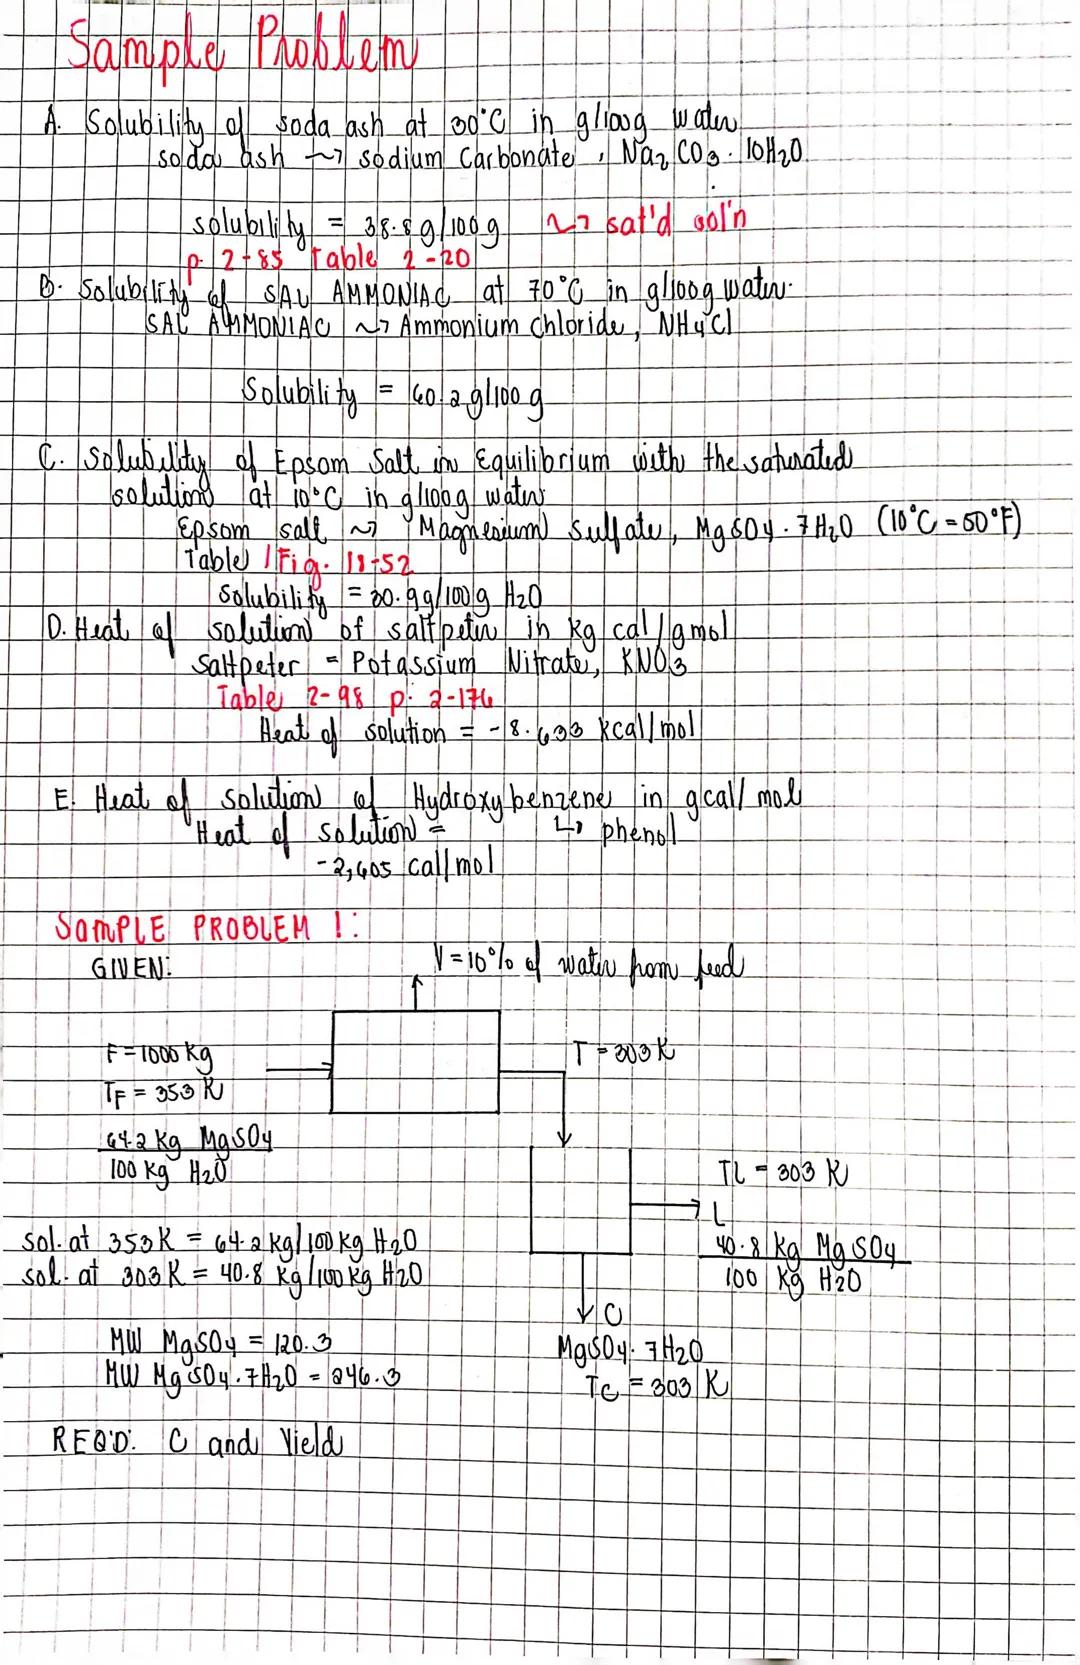 Sample Problem
A. Solubility of soda ash at 30°C in g/100g water
soda ash ~> sodium Carbonate, Na2CO3·10H2O
solubility = 38.8g/100g ~> sat'd sol'n
p. 2-85 Table 2-20
B. Solubility of SAL AMMONIAC at 70°C in g/100g water.
SAL AMMONIAC ~> Ammonium chloride, NH4Cl
Solubility = 60.2g/100g
C. Solubility of Epsom Salt in Equilibrium with the saturated
solution at 10°C in g/100g water
Epsom salt ~> Magnesium Sulfate, MgSO4·7H2O (10°C = 50°F)
Table / Fig. 18-52
Solubility = 30.9g/100g H2O
D. Heat of solution of saltpeter in kg cal/gmol
Saltpeter = Potassium Nitrate, KNO3
Table 2-98 p. 2-176
Heat of solution = -8.633 kcal/mol
E. Heat of solution of Hydroxybenzene in gcal/mol
Heat of solution = ↳ phenol
-2,605 cal/mol
SAMPLE PROBLEM 1:
GIVEN:
V = 10% of water from feed
F = 1000 kg
T = 303 K
TF = 353 K
64.2 kg MgSO4
100 kg H2O
TL = 303 K
L
sol. at 353K = 64.2 kg/100 kg H2O
40.8 kg MgSO4
sol. at 303K = 40.8 kg/100kg H2O
100 kg H2O
C
MW MgSO4 = 120.3
MgSO4·7H2O
MW MgSO4·7H2O = 246.3
TC = 303 K
REQ'D: C and Yield